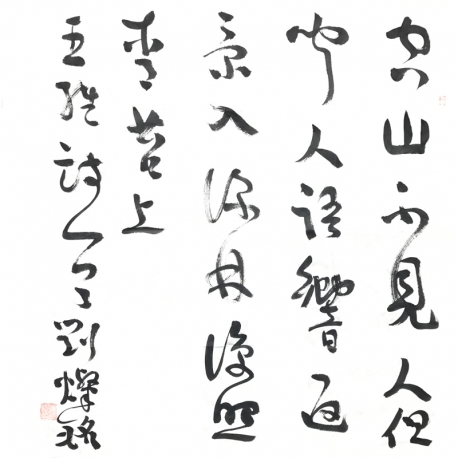 空山不見人但
聞人語響返
景入深林復照
青苔上
王維詩一首劉燦銘